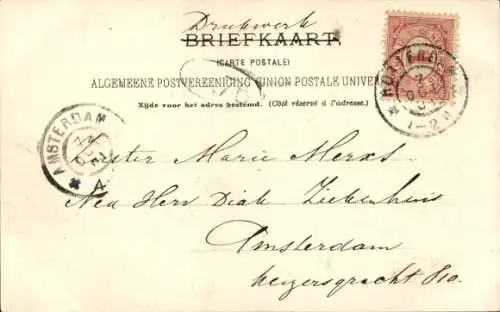 Drukwerk
BRIEFKAART
(CARTE POSTALE)
ALGEMEENE POSTVEREENIGING (UNION POSTALE UNIVER
Zijde voor het adres bestemd. (Côté réservé à l'adresse.)
ROTTERDAM
1-2 N
AMSTERDAM
Zuster Marie
Ned Herv Diak Ziekenhuis
Amsterdam
Keizersgracht 810.